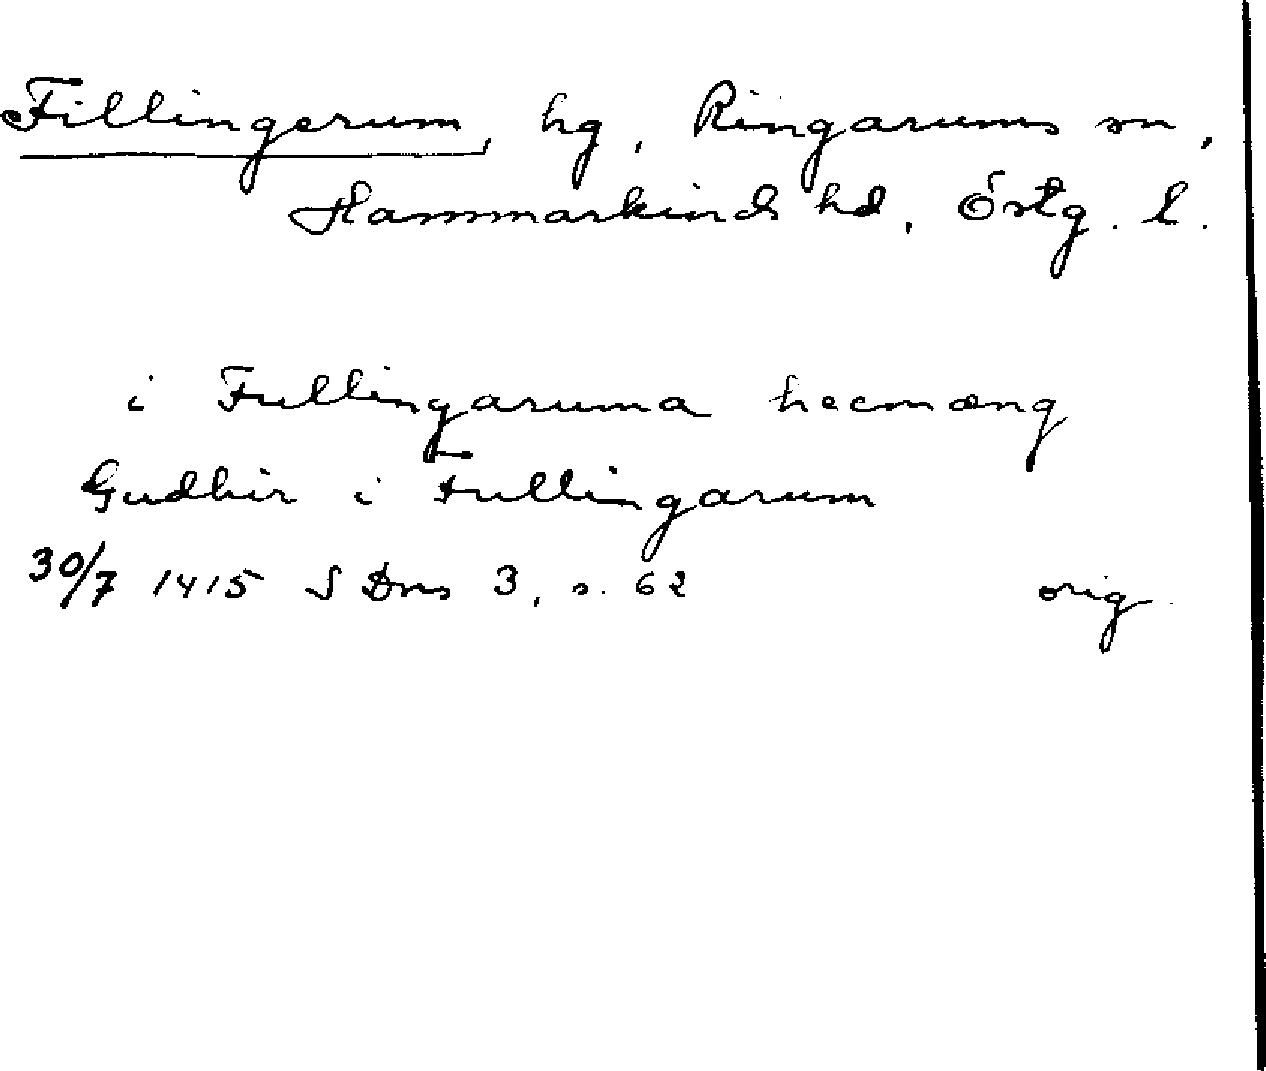 Fillingerum, hg, Ringarums sn,
Hammarkinds hd, Östg. l.
i Fullingaruma hecmæng
Gudhir i Fullingarum
30/7 1415 S Dns 3, s. 62 orig.